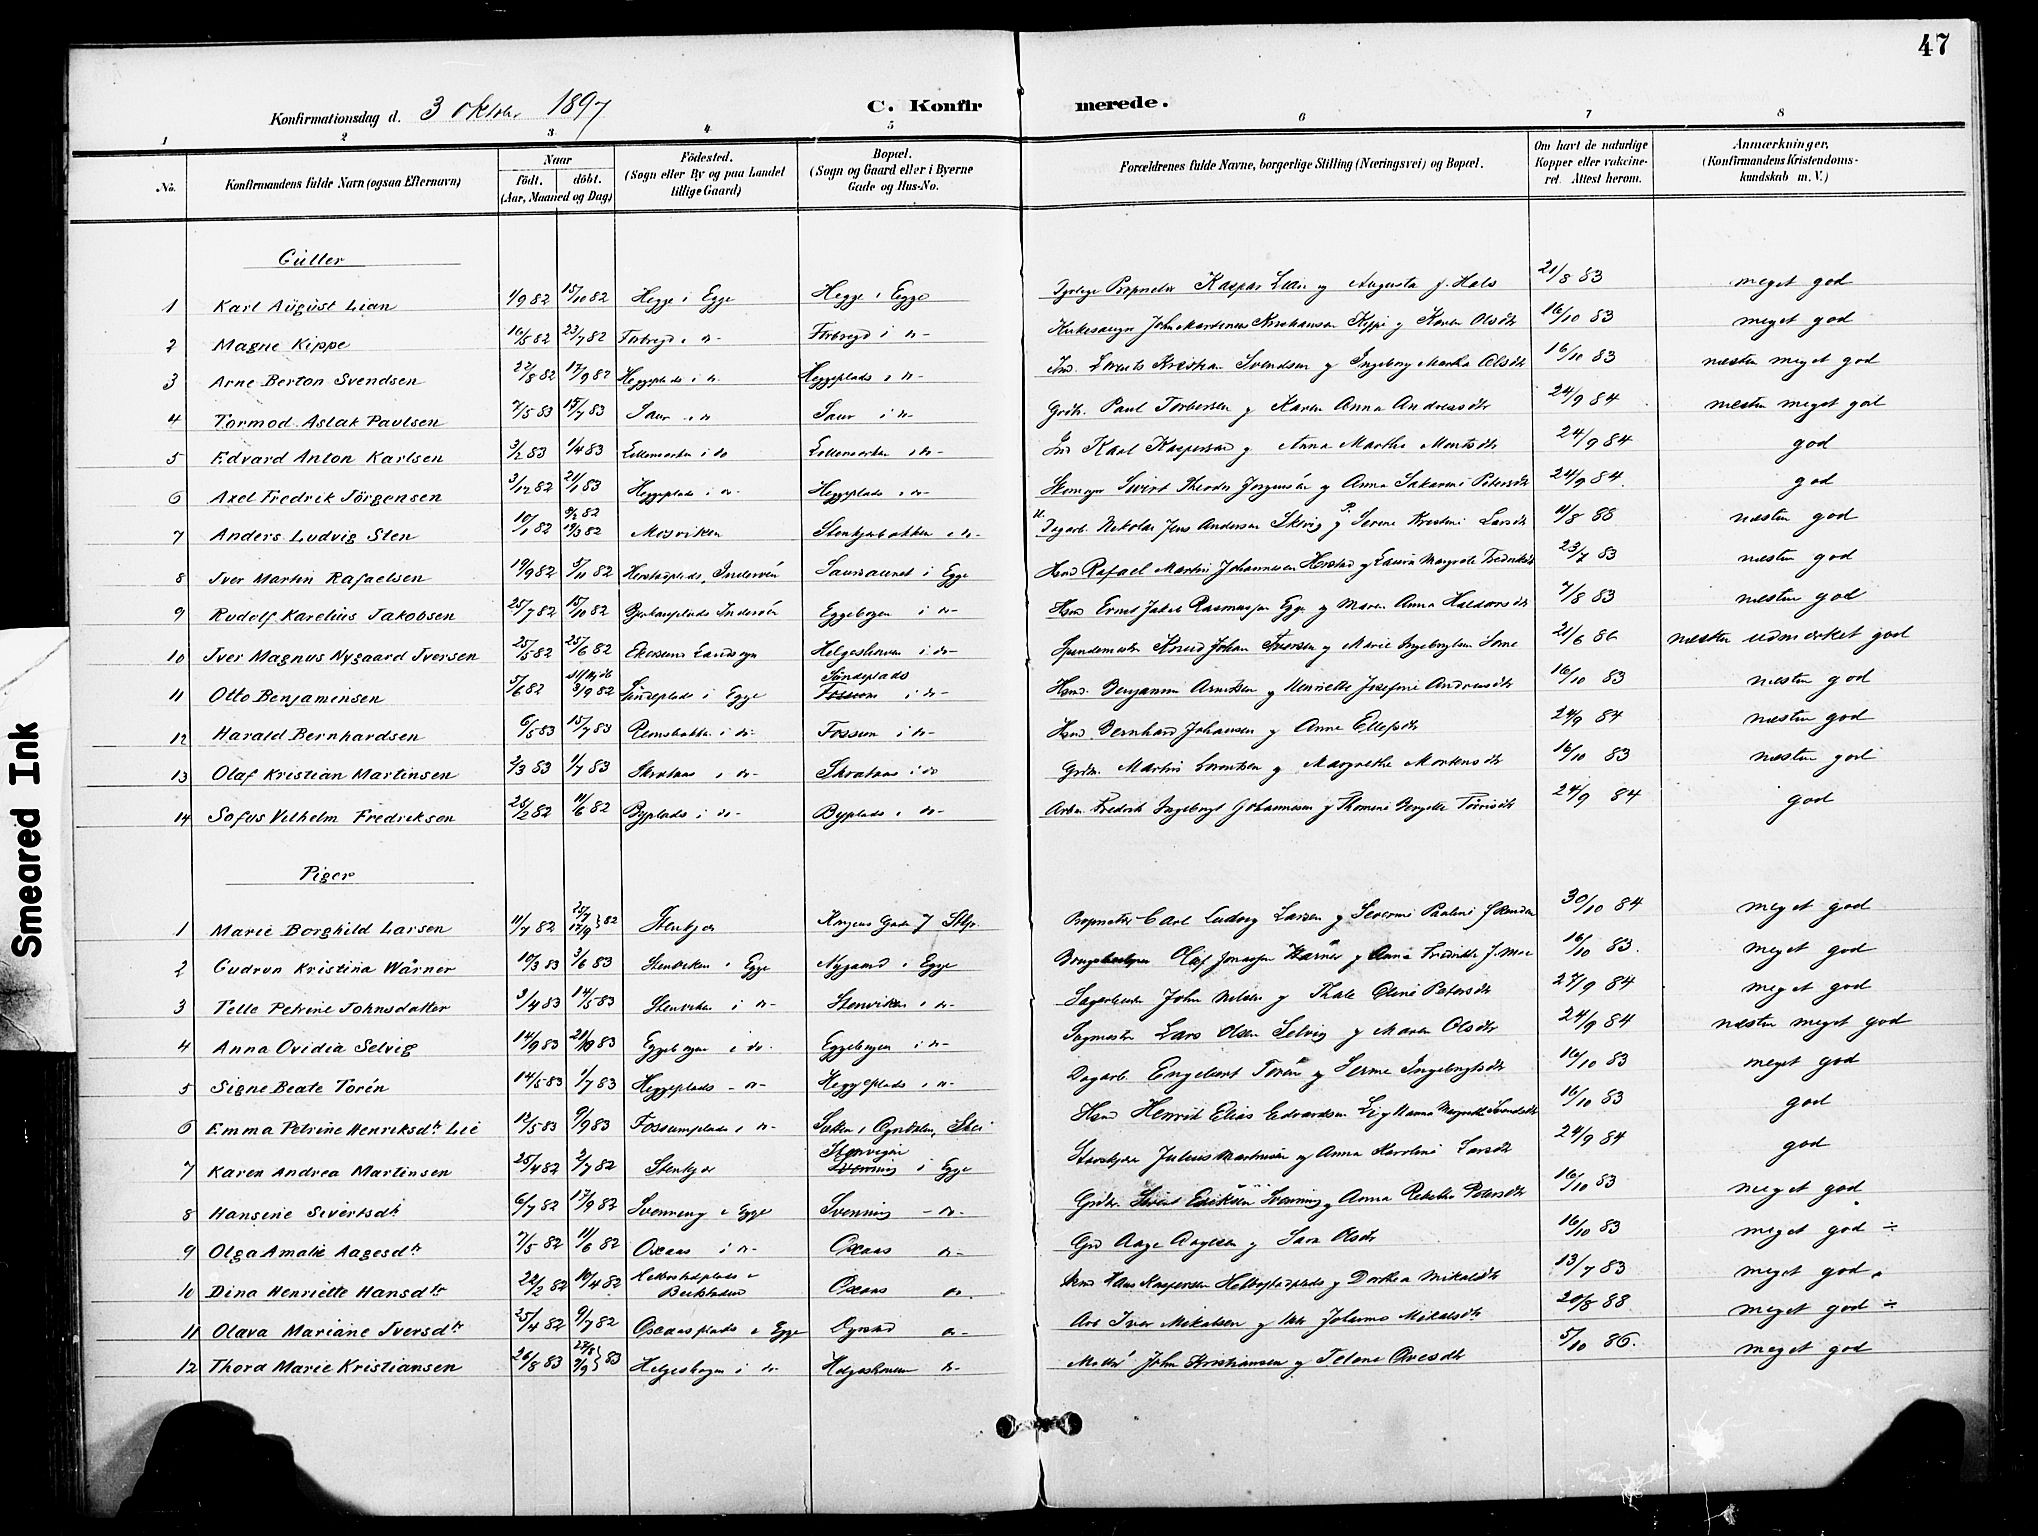 47
Konfirmationsdag d. 3 Oktober 1897
C. Konfirmerede.
1 2 3 4 5 6 7 8
No. Konfirmandens fulde Navn (ogsaa Efternavn) Naar födt. döbt. (Aar, Maaned og Dag) Födested. (Sogn eller By og paa Landet tillige Gaard) Bopæl. (Sogn og Gaard eller i Byerne Gade og Hus-No. Forældrenes fulde Navne, borgerlige Stilling (Næringsvei) og Bopæl. Om havt de naturlige Kopper eller vakcineret. Attest herom. Anmærkninger, (Konfirmandens Kristendomskundskab m. V.)
Gutter
1 Karl August Lian 1/9 82 15/10 82 Hegge i Egge Hegge i Egge Kaspar Lian og Augusta f. Hals 21/8 83 meget god
2 Magne Kippe 16/5 82 23/7 82 Forbregd i do- Forbregd i do- Kirkesanger Kippe og Karen Olsdtr 16/10 83 meget god
3 Arne Berton Svendsen 22/8 82 17/9 82 Heggeplads i do. Heggeplads i do- Ind. Lorents Kristian Svendsen og Ingeborg Martha Olsdtr 16/10 83 næsten meget god
4 Tormod Aslak Paulsen 7/5 83 15/7 83 Saur i do Saur i do- Grdbr. Paul Torbersen og Karen Anna Andreasdtr 24/9 84 næsten meget god
5 Edvard Anton Karlsen 3/2 83 1/4 83 Lillemarken i do Lillemarken i do- Ind Karl Kaspersen og Anna Martha Mortsdtr 24/9 84 god
6 Axel Fredrik Jörgensen 3/12 82 21/1 83 Heggeplads i do- Heggeplads i do- Sivert Theodor Jörgensen og Anna Sakarine Petersdtr 24/9 84. god
7 Anders Ludvig Sten 10/1 82 5/2 82 19/3 82 Mosviken Stenkjerbakken i do- Dagarb. Nikolai Jens Andersen Skevig og Serene Kristine Larsdtr 11/8 88 næsten god
8 Iver Martin Rafaelsen 19/9 82 5/11 82 Herstadplads, Inderöen Saursaunet i Egge Hsmd Rafael Martin Johannesen Herstad og Laura Margrete Fredriksdtr 23/7 83 næsten god
9 Rudolf Karelius Jakobsen 25/7 82 15/10 82 Inderöen Eggebogen i do- Hsmd Ernst Jakob Rasmussen Egge og Maren Anna Haldorsdtr 7/8 83 næsten god
10 Iver Magnus Nygaard Iversen 25/5 82 25/6 82 Ekersund Landsogn Helgeshaven i do- Knud Johan Iversen og Marie Ingebrigtsen Sorne 21/6 86 næsten udmærket god
11 Otto Benjaminsen 5/6 82 3/9 82 Sundeplads i Egge Sundeplads Fossum i do- Hsmd. Benjamin Arntsen og Henriette Josefine Andreasdtr 16/10 83 næsten god
12 Harald Bernhardsen 6/5 83 15/7 83 Remsbakken i do- Fossum i do- Hsmd. Bernhard Johansen og Anne Ellefsdtr 24/9 84 næsten god
13 Olaf Kristian Martinsen 2/3 83 1/7 83 Skrataas i do- Skrataas i do Grdbr. Martin Lorentsen og Margrethe Mortensdtr 16/10 83 næsten god
14 Sofus Vilhelm Fredriksen 25/2 82 11/6 82 Byplads i do- Byplads i do- Arbm. Fredrik Ingebrigt Johannesen og Thomine Bergitte Törrisdtr 24/9 84 god
Piger
1 Marie Borghild Larsen 11/7 82 25/7 17/9 } 82 Stenkjer Kongens Gade 7 Stkjr. Proprietær Carl Ludvig Larsen og Severine Pauline f. Randem 30/10 84 meget god
2 Gudrun Kristina Wårner 10/3 83 3/6 83 Stenviken i Egge Nygaard i Egge Olaf Jonassen Wårner og Anna Fredrikke f. Moe 16/10 83. meget god
3 Telle Petrine Johnsdatter 3/4 83 14/5 83 Stenviken i do- Stenviken i do- Sagarbeider John Nilsen og Thale Oline Petersdtr 27/9 84 meget god
4 Anna Ovidia Selvig 14/9 83 21/10 83 Eggebogen i do. Eggebogen i do- Sagmester Lars Olsen Selvig og Maren Olsdtr 24/9 84 næsten meget god
5 Signe Beate Torén 14/5 83 1/7 83 Heggeplads - do- Heggeplads i do- Dagarb. Engebert Torén og Serine Ingebrigtsdtr 16/10 83 meget god
6 Emma Petrine Henriksdtr Lie 12/5 83 9/9 83 Fossumplads i do- Hsmd Henrik Elias Edvardsen Lie og Hanna Margrethe Svendsdtr 16/10 83 god
7 Karen Andrea Martinsen 25/4 82 2/7 82 Stenkjer Stenvigen Svenning i Egge Julius Martinsen og Anna Karoline Larsdtr 24/9 84 god
8 Hansine Sivertsdtr 6/7 82 17/9 82 Svenning i Egge Svenning - do- Grdbr. Sivert Eriksen Svenning og Anna Rebekka Petersdtr 16/10 83 meget god
9 Olga Amalie Aagesdtr 7/5 82 11/6 82 Oxaas i do- Oxaas do- Grd Aage Aagesen og Sara Olsdtr 16/10 83 meget god ÷
10 Dina Henriette Hansdtr 22/2 82 10/4 82 Helbostadplads i Beitstaden Oxaas do. Hsmd Hans Kaspersen Helbostadplads og Dorthea Mikalsdtr 13/7 83 meget god
11 Olava Mariane Iversdtr 25/4 82 9/7 82 Oxaasplads i Egge Dyrstad do- Arb Iver Mikalsen og Johanna Mikalsdtr 20/8 88. meget god ÷
12 Thora Marie Kristiansen 26/8 83 27/8 9/9 } 83 Helgeshagen i do- Helgeshaven do- John Kristiansen og Telena Ovesdtr 5/10 86. meget god
Smeared Ink